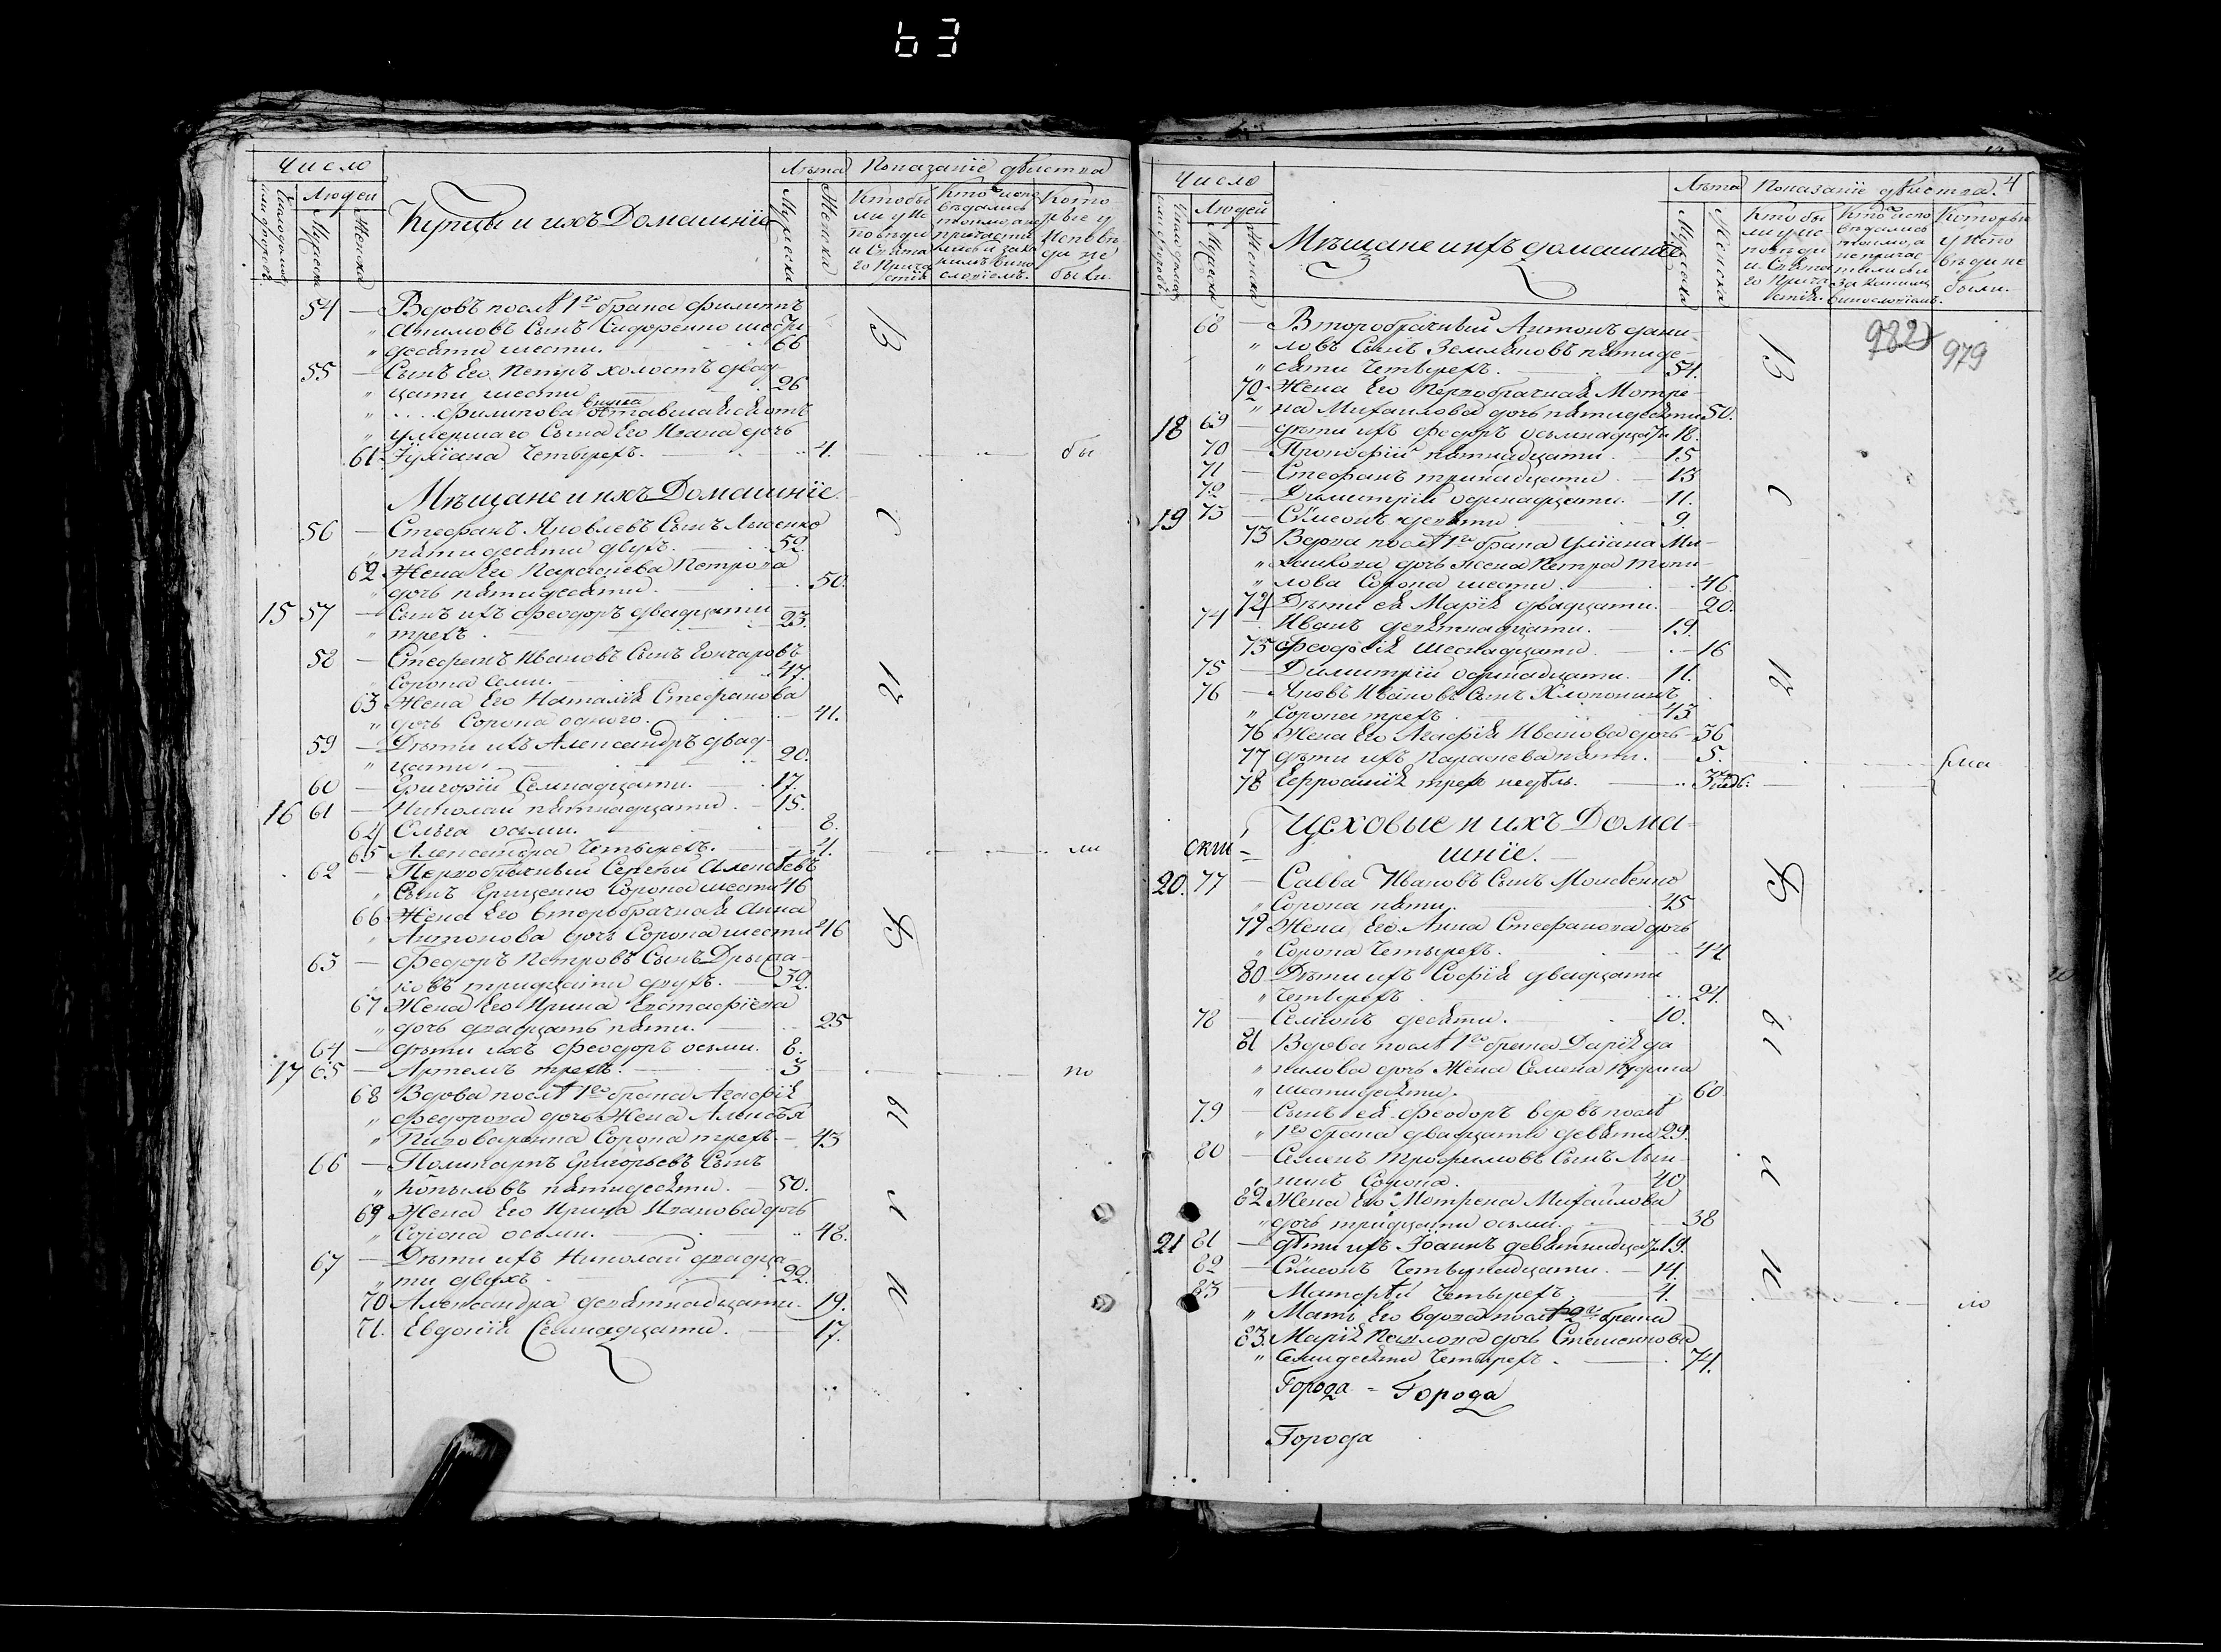 63
Число
Людей
Мужеска
Женска
Купцы и ихъ Домашнїе
Лѣта
Мужеска
Женска
Показанїе дѣиства
Кто бы
ли у Ис
повѣди
и Свята
го Прича
стія
Которые у
Исповѣ
ди не
были.
54 — Вдовъ послѣ 1го брака Филиппъ
" Акимовъ Сынъ Сидоренко шести
" десяти шести. 66
55 — Сынъ Его Петръ холостъ двад-
" цати шести 26
" Филипова внука оставшаяся отъ
" умершаго Сына Его Ивана дочь
61 Іулїана Четырехъ. 4. бы
Мѣщане и ихъ Домашнїе.
56 — Стефанъ Яковлевъ Сынъ Лысенко
" пятидесяти двухъ. 52.
62 Жена Его Параскева Петрова
" дочь пятидесяти. 50.
15 57 — Сынъ ихъ Феодоръ двадцати
" трехъ. 23.
58 — Стефанъ Ивановъ Сынъ Гончаровъ
" Сорока Семи. 47.
63 Жена Его Наталія Стефанова
" дочь Сорока одного. 41.
59 — Дѣти ихъ Александръ двад-
" цати. 20.
60 — Григорїй Семнадцати. 17.
16 61 — Николай пятнадцати. 15.
64 Ольга осьми. 8.
65 Александра Четырехъ. 4. ли
62 — Первобрачный Сергѣй Алексѣевъ
" Сынъ Гриценко Сорока шести 46
66 Жена Его второбрачная Анна
" Антонова дочь Сорока шести 46
63 — Феодоръ Петровъ Сынъ
" ковъ тридцати двухъ. 32.
67 Жена Его Ирина Евстафїева
" дочь двадцать пяти. 25
64 — дѣти ихъ Феодоръ осьми. 8.
17 65 — Артемъ трехъ. 3 но
68 Вдова послѣ 1го брака Агафїя
" Феодорова дочь Жена Алексѣя
" Пивоваренка Сорока трехъ. 43
66 — Поликарпъ Григорьевъ Сынъ
" Копыловъ пятидесяти. 50.
69 Жена Его Ирина Иванова дочь
" Сорока осьми. 48.
67 — Дѣти ихъ Николай двадца-
" ти двухъ. 22.
70 Александра девятнадцати. 19.
71. Евдокія Семнадцати. 17.
Число
Людей
Мужеска
Женска
Мѣщане и ихъ домашнїе
Лѣта
Мужеска
Женска
Показанїе дѣиства. 4
Кто бы
ли у Ис
повѣди
и Свята
го Прича
стія.
Которые
у Испо
вѣди не
были.
982 979
68 — Второбрачный Антонъ Дани-
" ловъ Сынъ Земляковъ пятиде-
" сяти Четырехъ. 54.
70 Жена Его Первобрачная Мотре-
" на Михайлова дочь пятидесяти 50.
18 69 — дѣти ихъ Феодоръ осьмнадцати 18.
70 — Прокофїй пятнадцати. 15
71 — Стефанъ тринадцати. 13
72 — Димитрїй одинадцати. 11.
19 73 — Сѵмеонъ девяти 9.
73 Вдова послѣ 1го брака Улїана Ми-
" дочь Жена Петра
" лова Сорока шести. 46.
74 Дѣти ея Марїя двадцати. 20.
74 — Иванъ девятнадцати. 19.
75 Феодосїя шеснадцати 16
75 — Димитрїй одинадцати. 11.
76 — Яковъ Ивановъ Сынъ Хлопонинъ
" Сорока трехъ 43
76 Жена Его Агафїя Иванова дочь 36
77 дѣти ихъ Параскева пяти. 5.
78 Ефросинїя трехъ недѣль. 3 нед:
Цеховые и ихъ Дома-
шнїе.
20. 77 — Савва Ивановъ Сынъ
" Сорока пяти. 45
79 Жена Его Анна Стефанова дочь
" Сорока Четырехъ. 44
80 Дѣти ихъ Софїя двадцати
" Четырехъ 24.
78 — Семіонъ десяти. 10.
81 Вдова послѣ 1го брака Дарїя Да
" нилова дочь Жена Семена
" шестидесяти. 60.
79 — Сынъ ея Феодоръ вдовъ послѣ
" 1го брака двадцати девяти 29.
80 — Семенъ Трофимовъ Сынъ
" нинъ Сорока. 40
82 Жена Его Мотрена Михайлова
" дочь тридцати осьми. 38
21 81 — дѣти ихъ Іоаннъ девятнадцати 19.
82 — Сѵмеонъ Четырнадцати. 14.
83 — Матѳѣй Четырехъ 4. ло
" Мать Его вдова послѣ 2го брака
83. Марїя Павлова дочь
" Семидесяти Четырехъ. 74.
Города - Города
Города